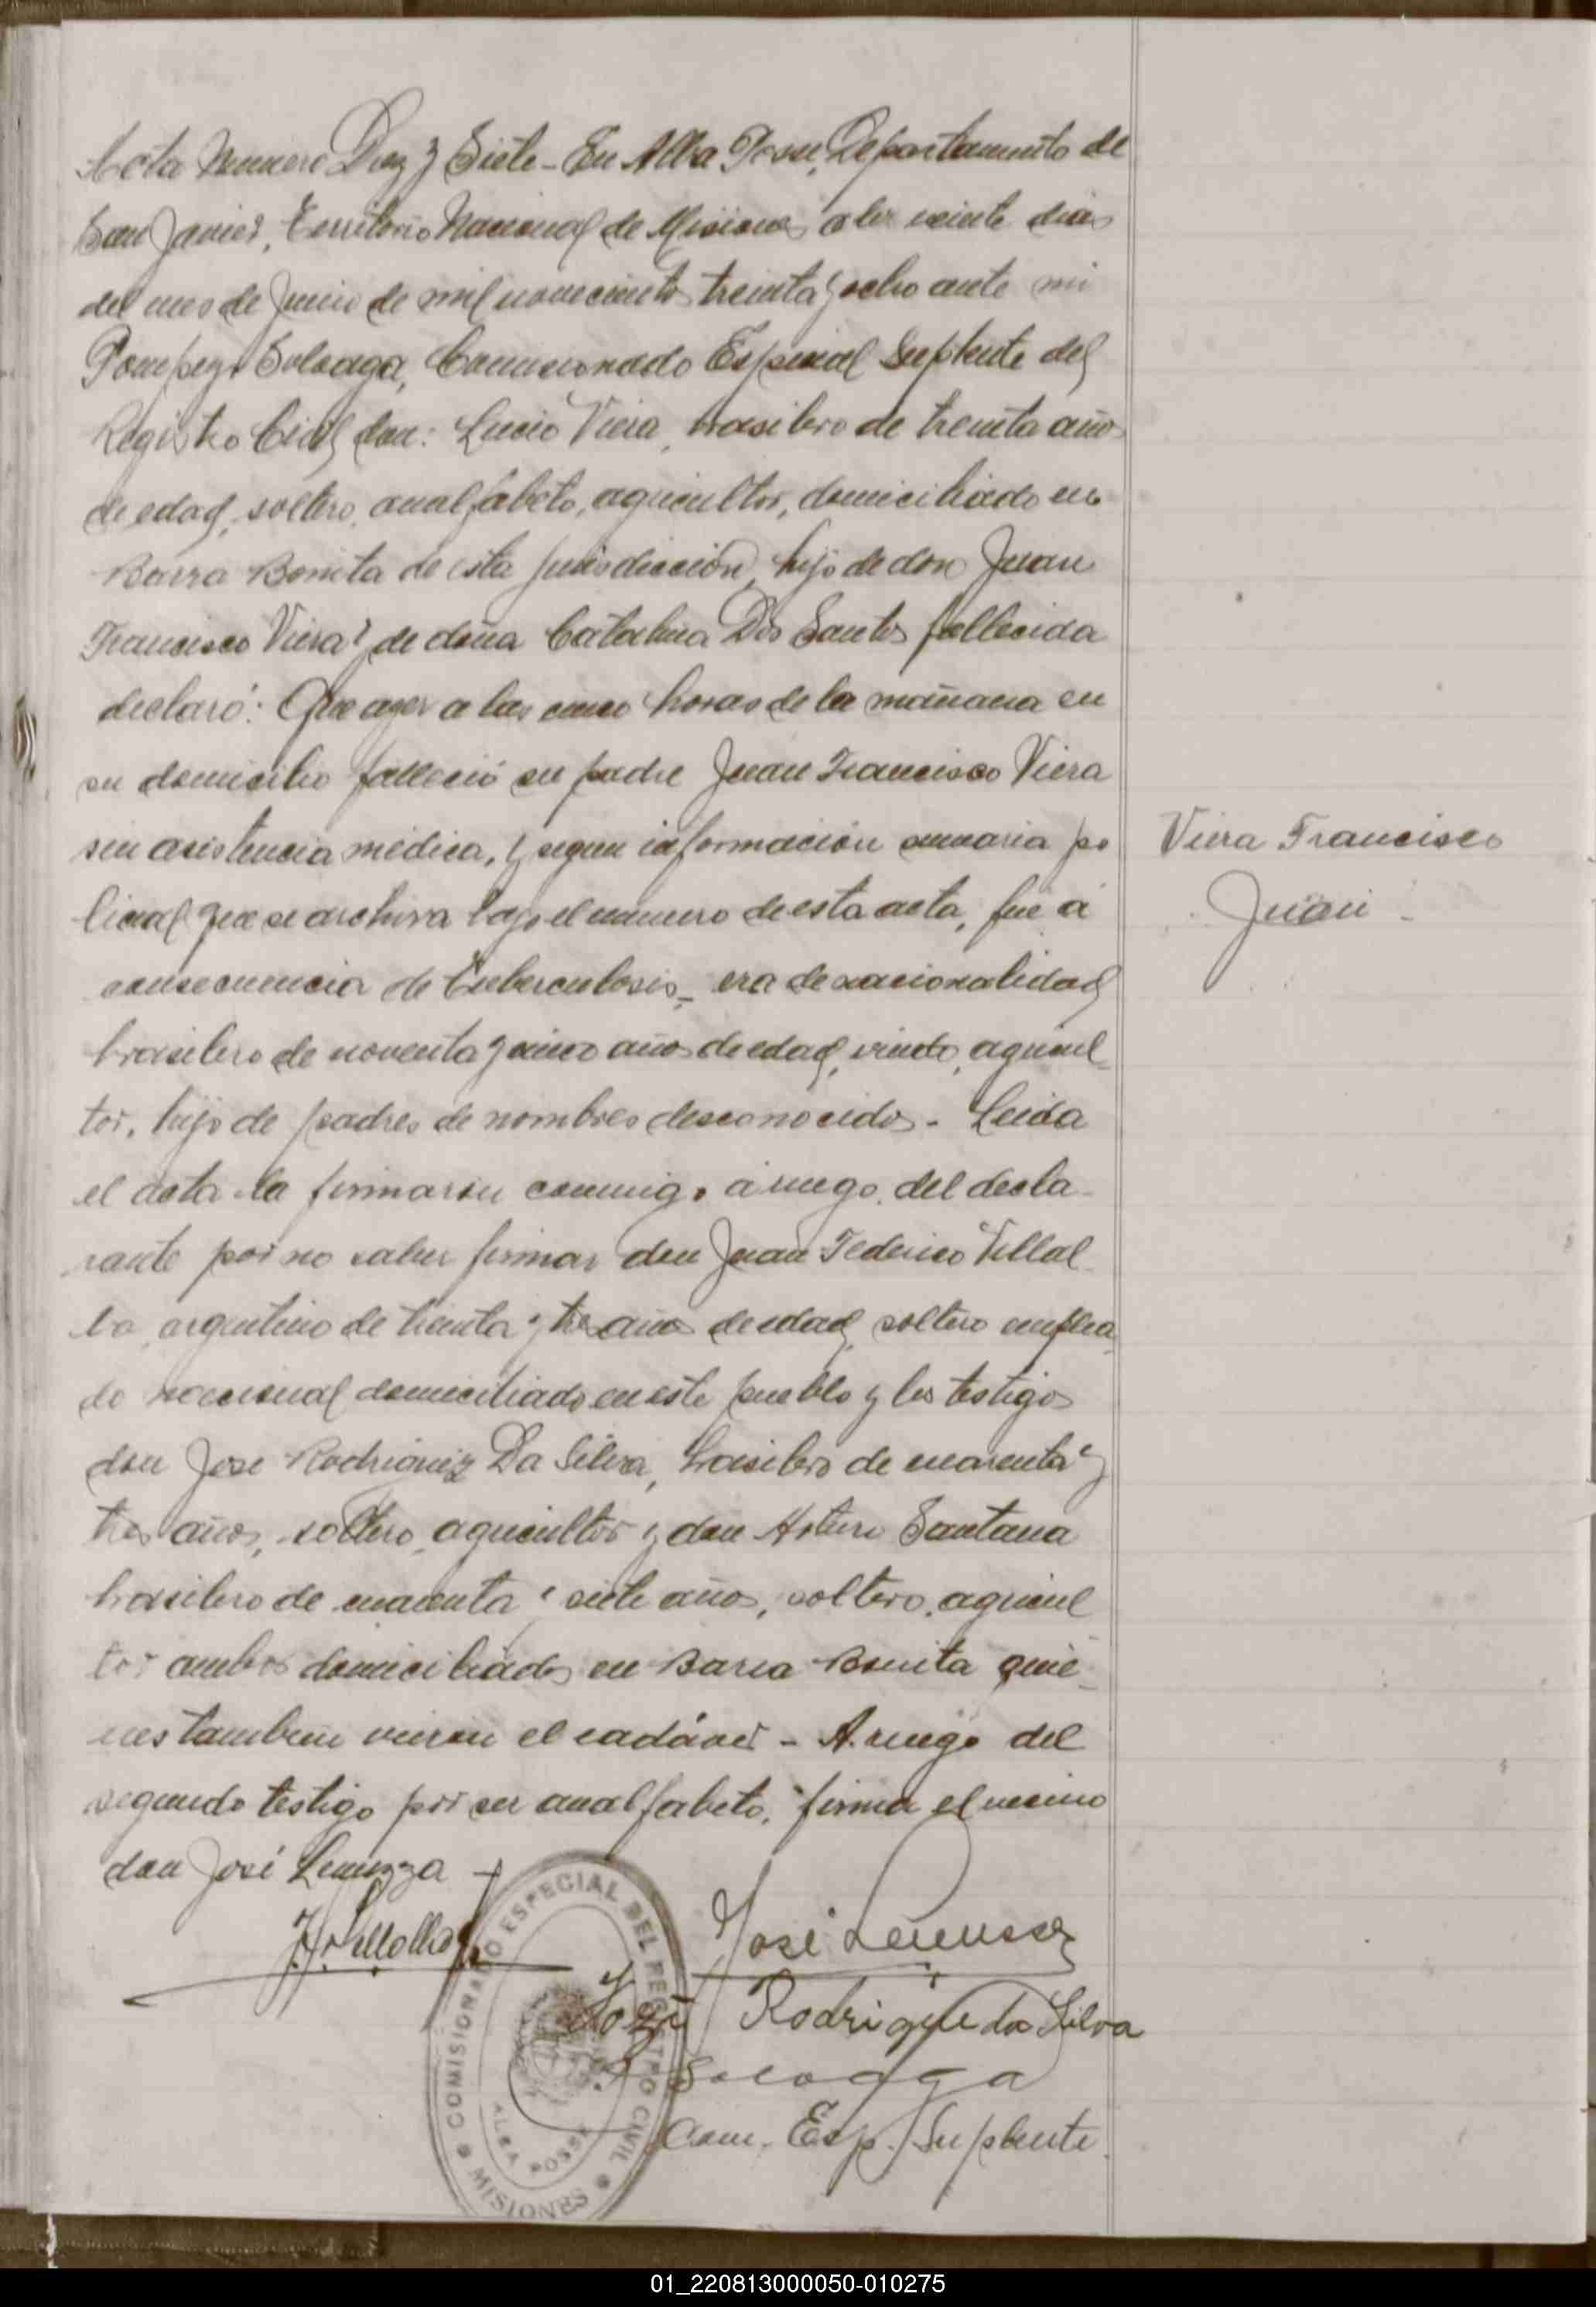 Acta Numero Diez y Siete - En Alba Posse, Departamento de
San Javier, Territorio Nacional de Misiones a los veinte dias
del mes de Junio de mil novecientos treinta y ocho ante mi
Pompeyo Soloaga, Comisionado Especial Suplente del
Registro Civil don: Lucio Viera, brasilero de treinta años
de edad, soltero, analfabeto, agricultor, domiciliado en
Barra Bonita de esta jurisdicción, hijo de don Juan
Francisco Viera y de doña Catalina Dos Santos fallecida
declaró: Que ayer a las cinco horas de la mañana en
su domicilio falleció su padre Juan Francisco Viera
sin asistencia médica, y segun información sumaria po
licial que se archiva bajo el numero de esta acta, fué á
consecuencia de Tuberculosis - era de nacionalidad
brasilero de noventa y cinco años de edad, viudo, agricul
tor, hijo de padres de nombres desconocidos - Leida
el acta la firmaron conmigo á ruego del decla-
rante por no saber firmar don Juan Federico Villal
ba argentino de treinta y tres años de edad soltero emplea
do nacional domiciliado en este pueblo y los testigos
don Jose Rodriguez Da Silva, brasilero de cuarenta y
tres años, soltero, agricultor y don Arturo Santana
brasilero de cuarenta y siete años, soltero, agricul
tor ambos domiciliados en Barra Bonita quie-
nes tambien vieron el cadáver - A ruego del
segundo testigo por ser analfabeto, firma el vecino
don José
Viera Francisco
Juan -
José
José Rodrigue da Silva
P. Soloaga
Com. Esp. Suplente
COMISIONADO ESPECIAL DEL REGISTRO CIVIL
ALBA POSSE
MISIONES
01_220813000050-010275